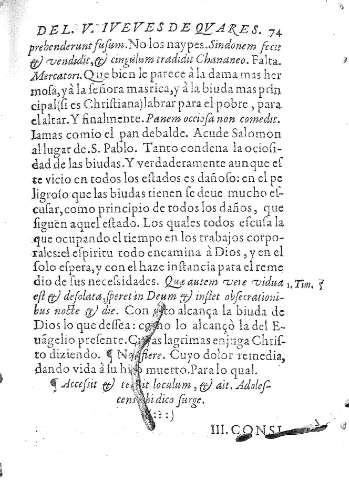 DEL. V. IVEVES DE QVARES. 74
prehenderunt fusum. No los naypes. Sindonem fecit
& vendidit, & cingulum tradidit Chananeo. Falta.
Mercatori. Que bien le parece à la dama mas her
mosa, y à la señora mas rica, y à la biuda mas prin
cipal (si es Christiana) labrar para el pobre, para
el altar. Y finalmente. Panem ociosa non comedit.
Iamas comio el pan debalde. Acude Salomon
al lugar de. S. Pablo. Tanto condena la ociosi
dad de las biudas. Y verdaderamente aunque es
te vicio en todos los estados es dañoso: en el pe
ligroso que las biudas tienen se deue mucho es-
cusar, como principio de todos los daños, que
siguen aquel estado. Los quales todos escusa la
que ocupando el tiempo en los trabajos corpo-
rales: el espiritu todo encamina à Dios, y en el
solo espera, y con el haze instancia para el reme
dio de sus necesidades. Que autem vere vidua 1. Tim. 5
est & desolata, speret in Deum & instet obsecrationi-
bus nocte & die. Con esto alcança la biuda de
Dios lo que dessea: como lo alcançò la del E-
uãgelio presente. Cuyas lagrimas enjuga Chris-
to diziendo. ¶ Noli flere. Cuyo dolor remedia,
dando vida à su hijo muerto. Para lo qual.
¶ Accessit & tetigit loculum, & ait. Adoles-
cens tibi dico surge.
III. CONSI